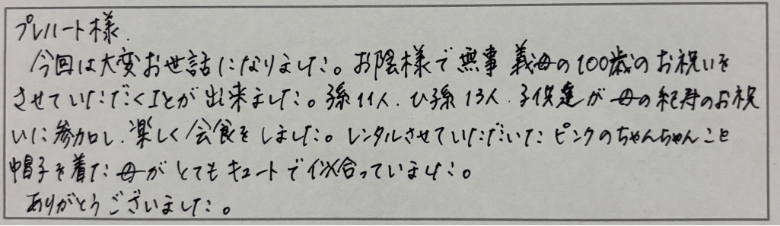 プレハート様.
今回は大変お世話になりました。お陰様で無事 義母の100歳のお祝いを
させていただくことが出来ました。孫11人、ひ孫13人、子供達が母の紀寿のお祝
いに参加し、楽しく会食をしました。レンタルさせていただいたピンクのちゃんちゃんこと
帽子を着た母がとてもキュートで似合っていました。
ありがとうございました。